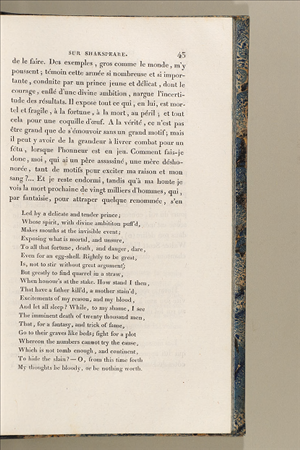 SUR SHAKSPEARE. 43
de le faire. Des exemples, gros comme le monde, m'y
poussent; témoin cette armée si nombreuse et si impor-
tante, conduite par un prince jeune et délicat, dont le
courage, enflé d'une divine ambition, nargue l'incerti-
tude des résultats. Il expose tout ce qui, en lui, est mor-
tel et fragile, à la fortune, à la mort, au péril; et tout
cela pour une coquille d'œuf. A la vérité, ce n'est pas
être grand que de s'émouvoir sans un grand motif; mais
il peut y avoir de la grandeur à livrer combat pour un
fétu, lorsque l'honneur est en jeu. Comment fais-je
donc, moi, qui ai un père assassiné, une mère désho-
norée, tant de motifs pour exciter ma raison et mon
sang?... Et je reste endormi, tandis qu'à ma honte je
vois la mort prochaine de vingt milliers d'hommes, qui,
par fantaisie, pour attraper quelque renommée, s'en
Led by a delicate and tender prince;
Whose spirit, with divine ambition puff'd,
Makes mouths at the invisible event;
Exposing what is mortal, and unsure,
To all that fortune, death, and danger, dare,
Even for an egg-shell. Rightly to be great,
Is, not to stir without great argument;
But greatly to find quarrel in a straw,
When honour's at the stake. How stand I then,
That have a father kill'd, a mother stain'd,
Excitements of my reason, and my blood,
And let all sleep? While, to my shame, I see
The imminent death of twenty thousand men,
That, for a fantasy, and trick of fame,
Go to their graves like beds; fight for a plot
Whereon the numbers cannot try the cause,
Which is not tomb enough, and continent,
To hide the slain? — O, from this time forth
My thoughts be bloody, or be nothing worth